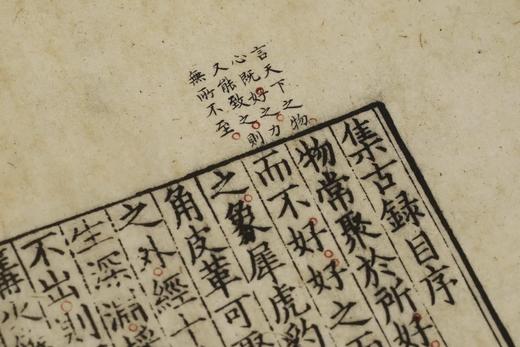 言天下之物
心既好之力
又能致之則
無所不至
集古録目序
物常聚於所好
而不好好之而
之象犀虎豹
角皮革可
之外經十
生深淵採
不出則
篝火